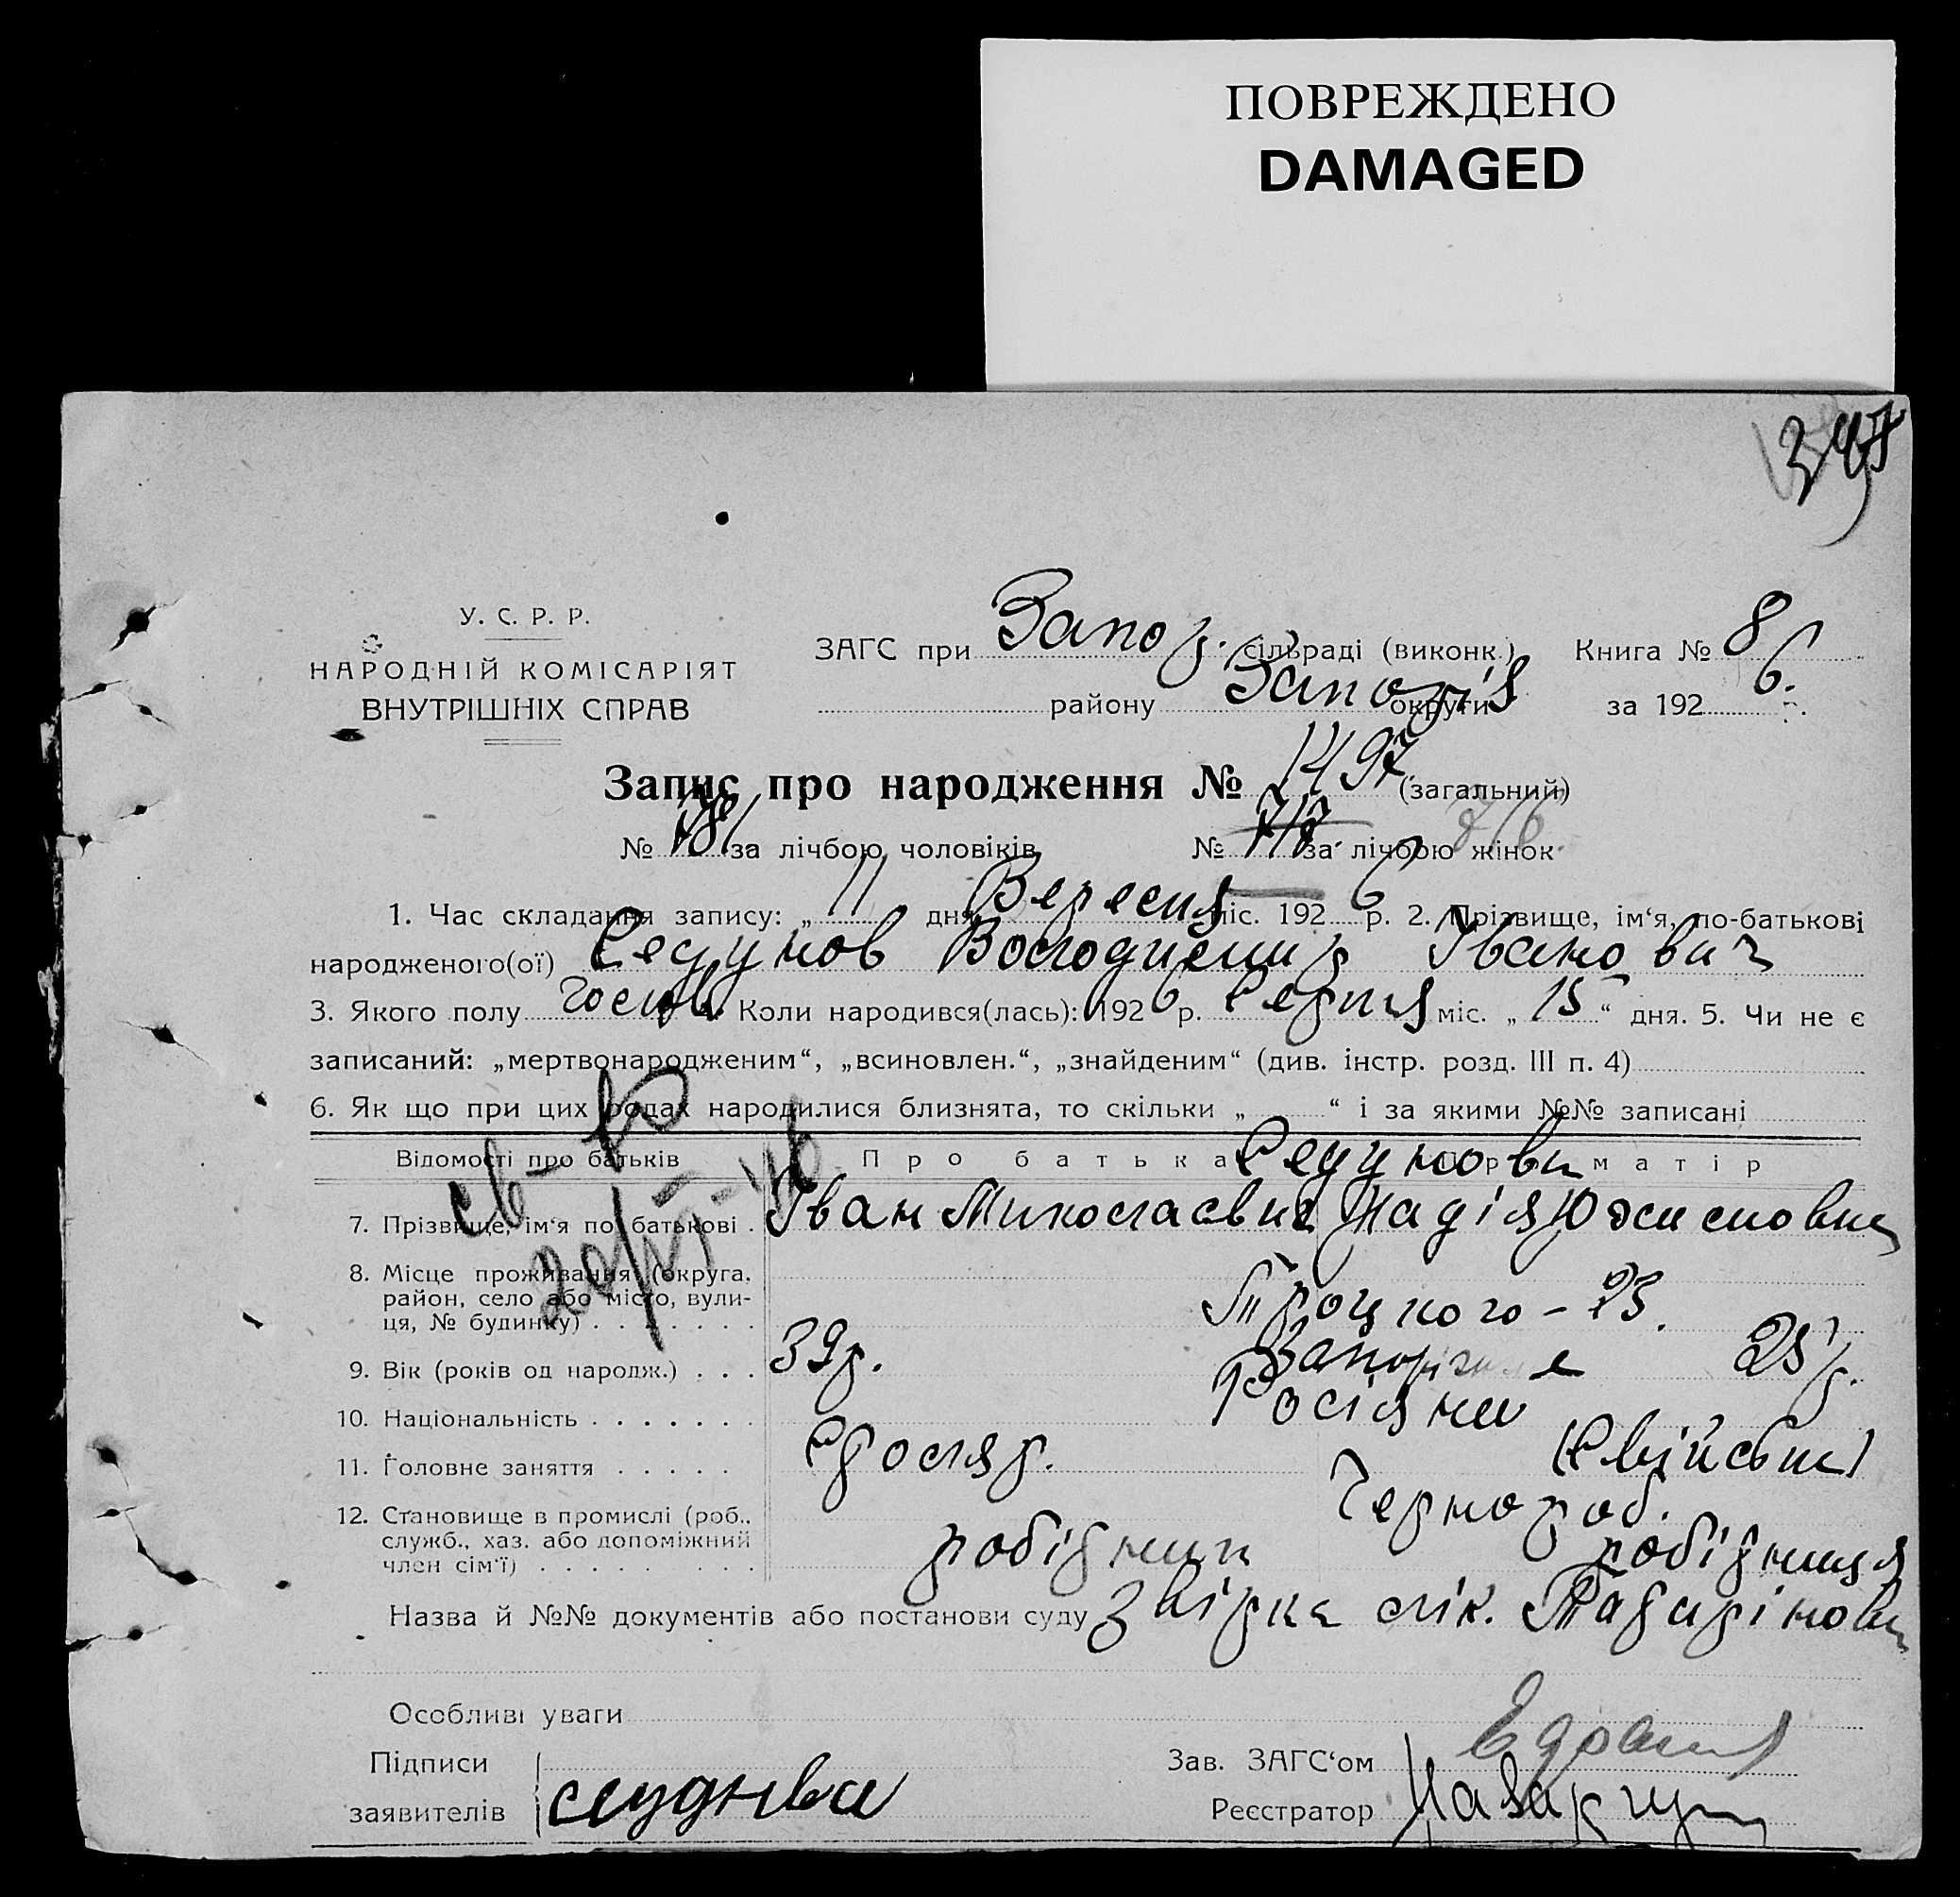 ПОВРЕЖДЕНО
DAMAGED
У. С. Р. Р.
НАРОДНІЙ КОМІСАРІЯТ
ВНУТРІШНІХ СПРАВ
ЗАГС при Запор. сільраді (виконк.) Книга № 8
району Запоріз округи за 1926.
Запис про народження № 1497 (загальний)
№ 781 за лічбою чоловіків № 717 за лічбою жінок 716.
1. Час складання запису: „ 11 дня Вересня міс. 1926 р. 2. Прізвище, ім‘я, по-батькові
народженого(ої) Седунов Володимир Іванович
3. Якого полу Коли народився(лась): 1926 р. Серпня міс. „ 15 “ дня. 5. Чи не є
записаний: „мертвонародженим“, „всиновлен.“, „знайденим“ (див. інстр. розд. III п. 4)
6. Як що при цих родах народилися близнята, то скільки „ “ і за якими №№ записані
Відомості про батьків Про батька Седунови Про матір
7. Прізвище, ім‘я по батькові . Іван Миколаєвич Надія
8. Місце проживання (округа, район, село або місто, вулиця, № будинку) . . . . . . . Троцкого – 23.
9. Вік (років од народж.) . . . 39р. Запоріжжє 25р.
10. Національність . . . . . . Росіяни
11. Головне заняття . . . . . Чернороб.
12. Становище в промислі (роб., служб., хаз. або допоміжний член сім‘ї) . . . . . . . . . робітник робітниця
Назва й №№ документів або постанови суду лік.
Особливі уваги
Підписи
заявителів
Зав. ЗАГС‘ом
Реєстратор
св-во